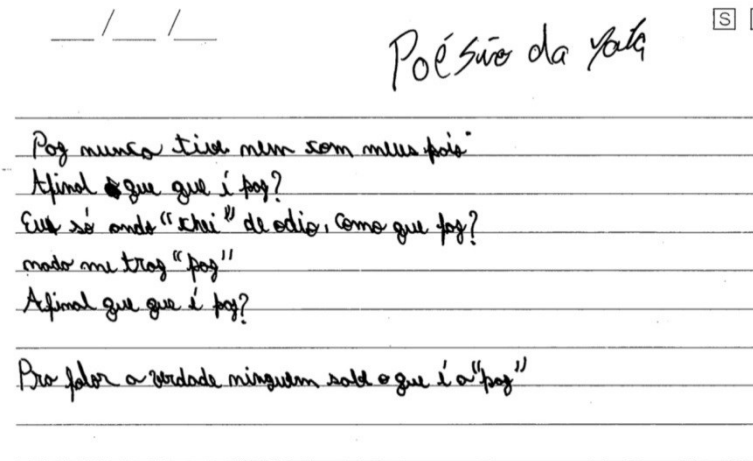 S
Poésião da
Paz nunca tive nem com meus pais
Afinal o que que é paz?
Eu só ando "chei" de odio, como que faz?
nada me traz "paz"
Afinal que que é paz?
Pra falar a verdade ninguem sabe o que é a "paz"